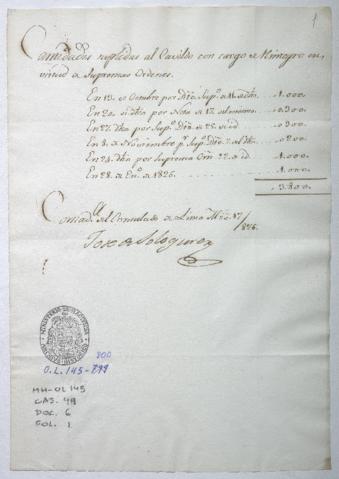 1
Cantidades suplidas al Cavildo con cargo
virtud de Supremas Ordenes.
En 13. de Octubre por Dec. Sup. de 11. 1.000.
En 20. Dho por Nota de 17. del mismo 0.300.
En 27. Dho por Sup. Dec. de 22. de id 0.300.
En 3. de Noviembre p. Sup. Dec. 0.200.
En 24. Dho por Suprema Orn 22. de id. 1.000.
En 28. de En.o de 1826. 1.000.
3.800.
Contad.a del Consulado de Lima Mzo 17/826.
Jose de Sologuren
MINISTERIO DE HACIENDA
800
O.L. 145-799
MH-OL 145
CAJ. 49
DOC. 6
FOL. 1